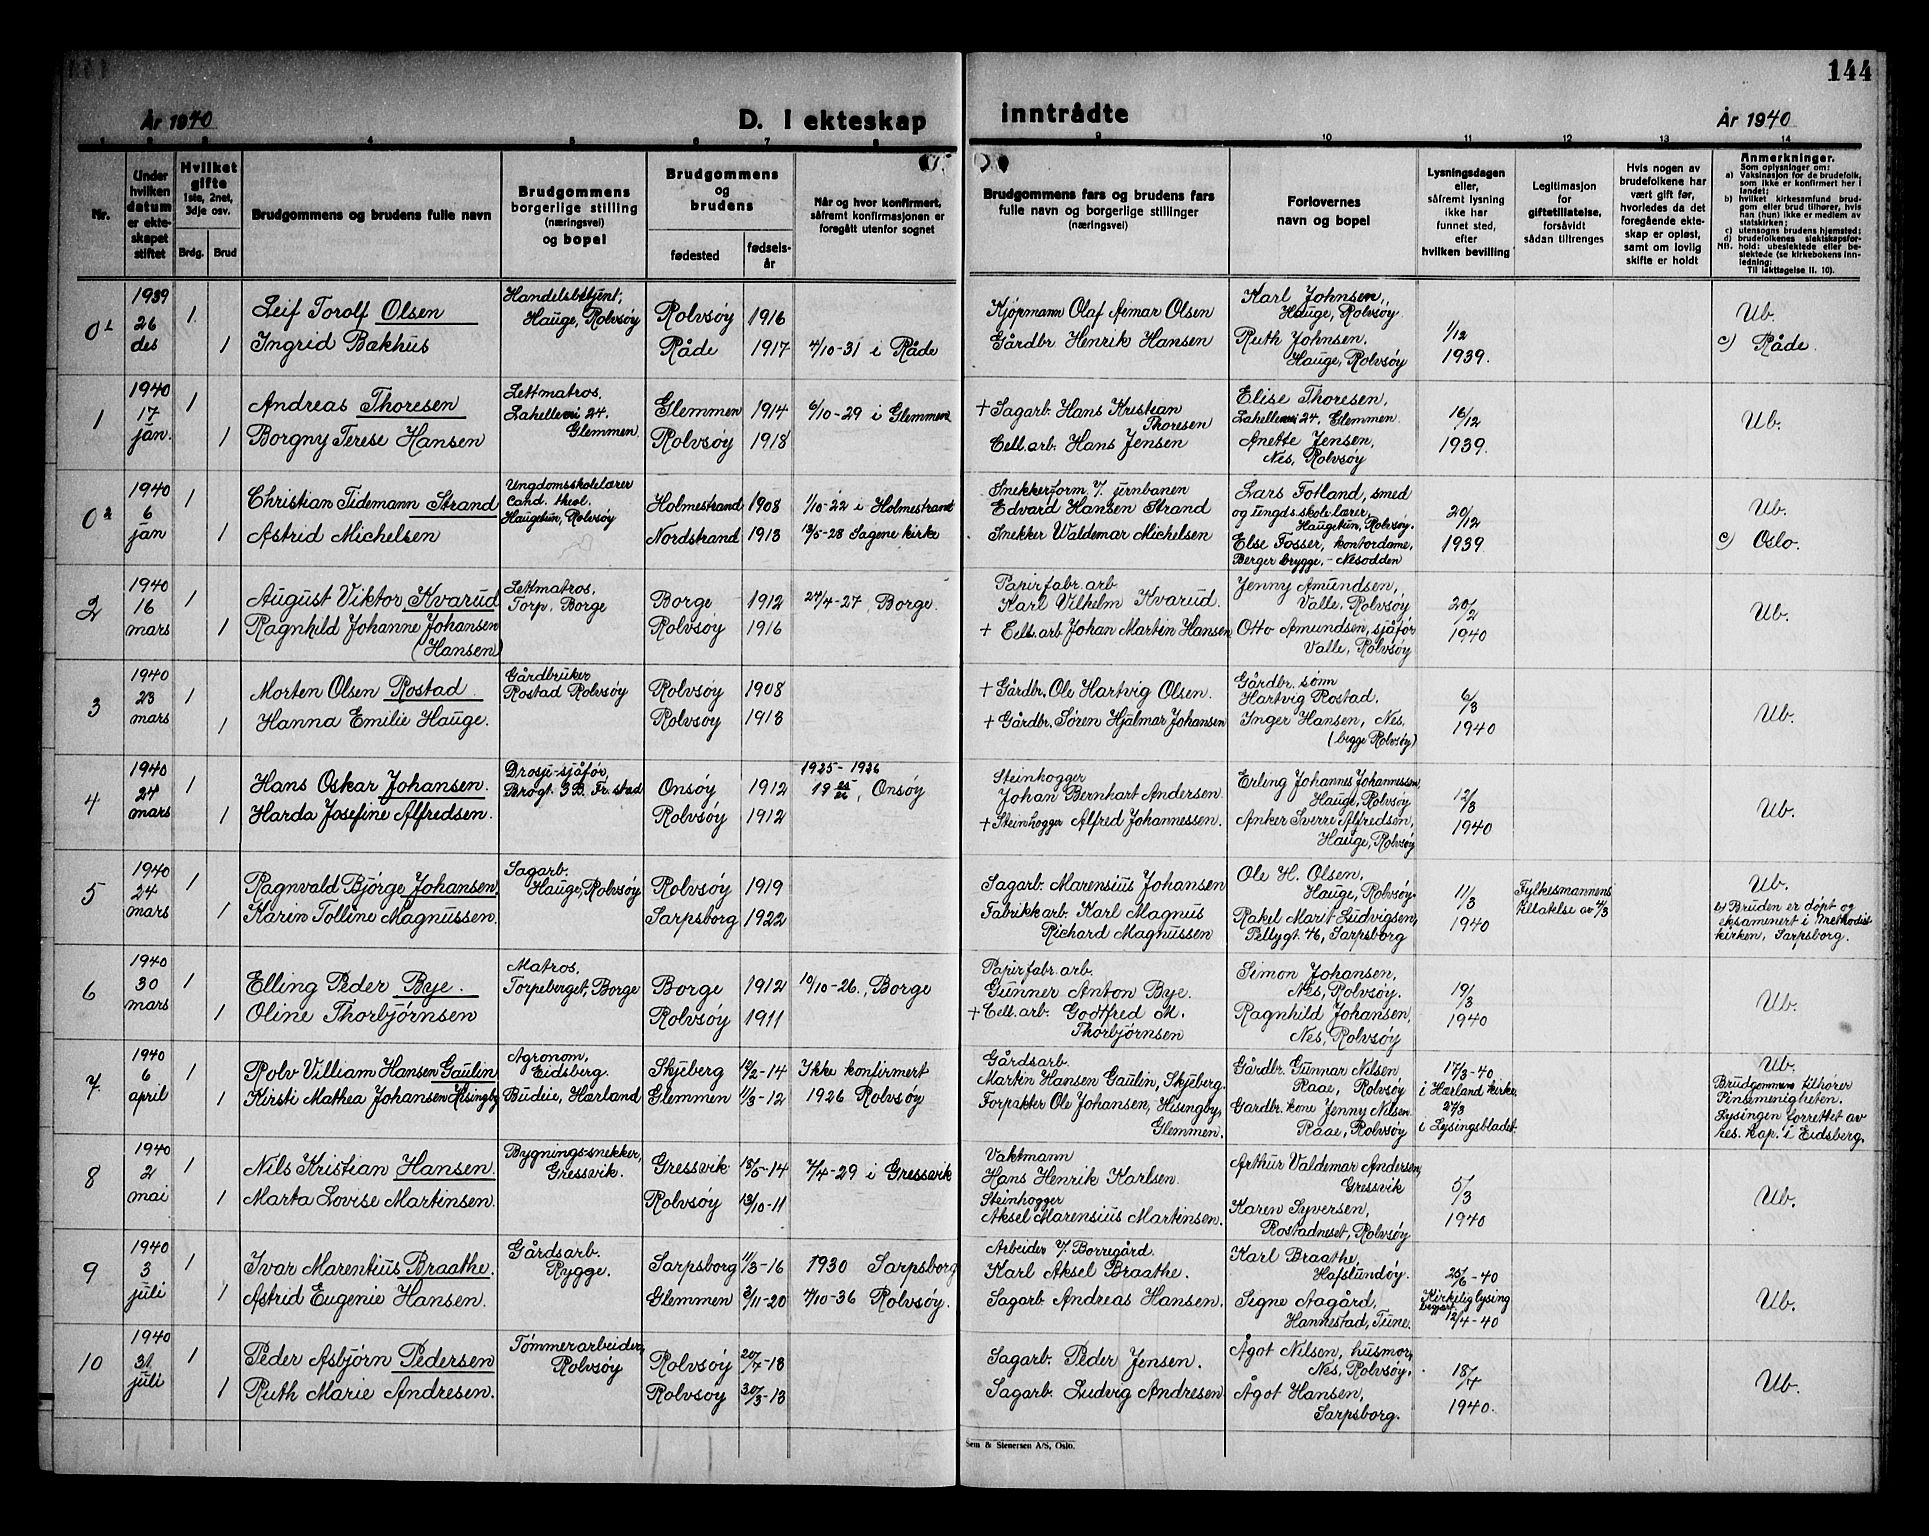 144
År 1940
D. I ekteskap inntrådte
År 1940
1 2 3 4 5 6 7 8 9 10 11 12 13 14
Nr.
Under hvilken datum er ekteskapet stiftet
Hvilket gifte 1ste, 2net, 3dje osv.
Brdg. Brud
Brudgommens og brudens fulle navn
Brudgommens borgerlige stilling (næringsvei) og bopel
Brudgommens og brudens
fødested
fødselsår
Når og hvor konfirmert, såfremt konfirmasjonen er foregått utenfor sognet
Brudgommens fars og brudens fars fulle navn og borgerlige stillinger (næringsvei)
Forlovernes navn og bopel
Lysningsdagen eller, såfremt lysning ikke har funnet sted, efter hvilken bevilling
Legitimasjon for giftetillatelse, forsåvidt sådan tiltrenges
Hvis nogen av brudefolkene har vært gift før, hvorledes da det foregående ekteskap er opløst, samt om lovlig skifte er holdt
Anmerkninger.
Som oplysninger om:
a) Vaksinasjon for de brudefolk, som ikke er konfirmert her i landet;
b) hvilket kirkesamfund brudgom eller brud tilhører, hvis han (hun) ikke er medlem av statskirken;
c) utensogns brudens hjemsted;
d) brudefolkenes slektskapsforhold: ubeslektede eller beslektede (se kirkebokens innledning:
NB.
Til iakttagelse II. 10).
0¹
1939 26 des
1
Leif Torolf Olsen
Handelsbetjent, Hauge, Rolvsøy
Rolvsøy 1916
Kjøpmann Olaf Aimar Olsen
Karl Johnsen, Hauge, Rolvsøy
1/12 1939.
Ub.
1
Ingrid Bækhus
Råde 1917
4/10-31 i Råde
Gårdbr Henrik Hansen
Ruth Johnsen, Hauge, Rolvsøy
c) Råde.
1
1940 17 jan.
1
Andreas Thoresen
Lettmatros, Lahelleveien 24. Glemmen
Glemmen 1914
6/10-29 i Glemmen
+ Sagarb. Hans Kristian Thoresen
Elise Thoresen, Lahelleveien 24, Glemmen.
16/12 1939.
Ub.
1
Borgny Terese Hansen
Rolvsøy 1918
Cell.arb. Hans Jensen
Anette Jensen, Nes, Rolvsøy
0²
1940 6 jan
1
Christian Tidemann Strand
Ungdomsskolelærer Cand. theol. Haugetun, Rolvsøy
Holmestrand 1908
1/10-22 i Holmestrand
Snekkerform. v/ jernbanen Edvard Hansen Strand
Lars Fotland, smed og ungds.skole.lærer, Haugetun, Rolvsøy.
20/12 1939
Ub.
1
Astrid Michelsen
Nordstrand 1913
13/5-28 Sagene kirke
Snekker Waldemar Michelsen
Else Fosser, kontordame, Berger brygge, - Nesodden
c) Oslo.
2
1940 16 mars
1
August Viktor Kvarud
Lettmatros, Torp, Borge
Borge 1912
24/4-27, Borge.
Papirfabr. arb. Karl Vilhelm Kvarud.
Jenny Amundsen, Valle, Rolvsøy
20/2 1940
Ub.
1
Ragnhild Johanne Johansen (Hansen)
Rolvsøy 1916
+ Cell.arb Johan Martin Hansen
Otto Amundsen, sjåfør Valle, Rolvsøy
3
1940 23 mars
1
Morten Olsen Rostad.
Gårdbruker Rostad Rolvsøy
Rolvsøy 1908
+ Gårdbr. Ole Hartvig Olsen.
Gårdbr. sønn Hartvig Rostad.
6/3 1940
Ub.
1
Hanna Emilie Hauge.
Rolvsøy 1913
+ Gårdbr. Søren Hjalmar Johansen
Inger Hansen, Nes, (begge Rolvsøy)
4
1940 24 mars
1
Hans Oskar Johansen.
Drosje-sjåfør, Brogt. 3 B. Fr. stad
Onsøy 1912
1925-1926 19 25/26, Onsøy
Steinhogger Johan Bernhart Andersen.
Erling Johannes Johannessen, Hauge, Rolvsøy
12/3 1940
Ub.
1
Harda Josefine Alfredsen.
Rolvsøy 1912
+ Steinhogger Alfred Johannessen.
Anker Sverre Alfredsen, Hauge, Rolvsøy
5
1940 24 mars
1
Ragnvald Bjørge Johansen
Sagarb. Hauge, Rolvsøy
Rolvsøy 1919
Sagarb. Marensius Johansen
Ole H. Olsen, Hauge, Rolvsøy.
11/3 1940
Fylkesmannens tillatelse av 4/3
Ub.
1
Karin Tolline Magnussen.
Sarpsborg 1922
Fabrikkarb. Karl Magnus Richard Magnussen
Rakel Marit Ludvigsen, Pellygt. 46, Sarpsborg
b) Bruden er døpt og eksaminert i Methodistkirken, Sarpsborg.
6
1940 30 mars
1
Elling Peder Bye.
Matros, Torpeberget, Borge
Borge 1912
10/10-26, Borge
Papirfabr. arb. Gunner Anton Bye.
Simon Johansen, Nes, Rolvsøy.
19/3 1940
Ub.
1
Oline Thorbjørnsen
Rolvsøy 1911
+ Cell.arb. Godtfred M. Thorbjørnsen
Ragnhild Johansen, Nes, Rolvsøy
7.
1940 6 april
1
Rolv Villiam Hansen Gaulin
Agronom, Eidsberg.
Skjeberg 10/2-14
Ikke konfirmert
Gårdsarb. Martin Hansen Gaulin, Skjeberg.
Gårdbr. Gunnar Nilsen, Raae, Rolvsøy
17/3-40 i Hærland kirke.
Ub.
1
Kirsti Mathea Johansen Hisingby
Budeie, Hærland
Glemmen 11/3-12
1926 Rolvsøy
Forpakter Ole Johansen, Hisengby, Glemmen.
Gårdbr. kone Jenny Nilsen Raae, Rolvsøy
27/3 i Lysingsbladet.
Brudgommens tilhører Pinsemenigheten. Lysingen forrettet av res. kap. i Eidsberg.
8
1940 2 mai
1
Nils Kristian Hansen.
Bygnings-snekker, Gressvik.
Gressvik 18/5-14
7/4-29 i Gressvik
Vaktmann Hans Henrik Karlsen.
Arthur Valdemar Andersen, Gressvik
5/3 1940
Ub.
1
Marta Lovise Martinsen.
Rolvsøy 13/10-11
Steinhogger Aksel Marensius Martinsen.
Karen Syversen, Rostadneset, Rolvsøy
9
1940 3 juli
1
Ivar Marentius Braathe.
Gårdsarb. Rygge.
Sarpsborg 11/3-16
1930 Sarpsborg
Arbeider v/ Borregård. Karl Aksel Braathe.
Karl Braathe, Hafslundsøy.
25/6-40
Ub.
1
Astrid Eugenie Hansen.
Glemmen 3/11-20
4/10-36 Rolvsøy.
Sagarb Andreas Hansen.
Signe Aagård, Hannestad, Tune.
Kirkelig lysing begjært 12/4-40
10
1940 31 juli
1
Peder Asbjørn Pedersen
Tømmerarbeider, Rolvsøy
Rolvsøy 20/7-13
Sagarb. Peder Jensen.
Ågot Nilsen, husmor, Nes, Rolvsøy.
18/7 1940.
Ub.
1
Ruth Marie Andresen.
Rolvsøy 30/3-13
Sagarb. Ludvig Andresen
Ågot Hansen, Sarpsborg.
Sem & Stenersen A/S, Oslo.